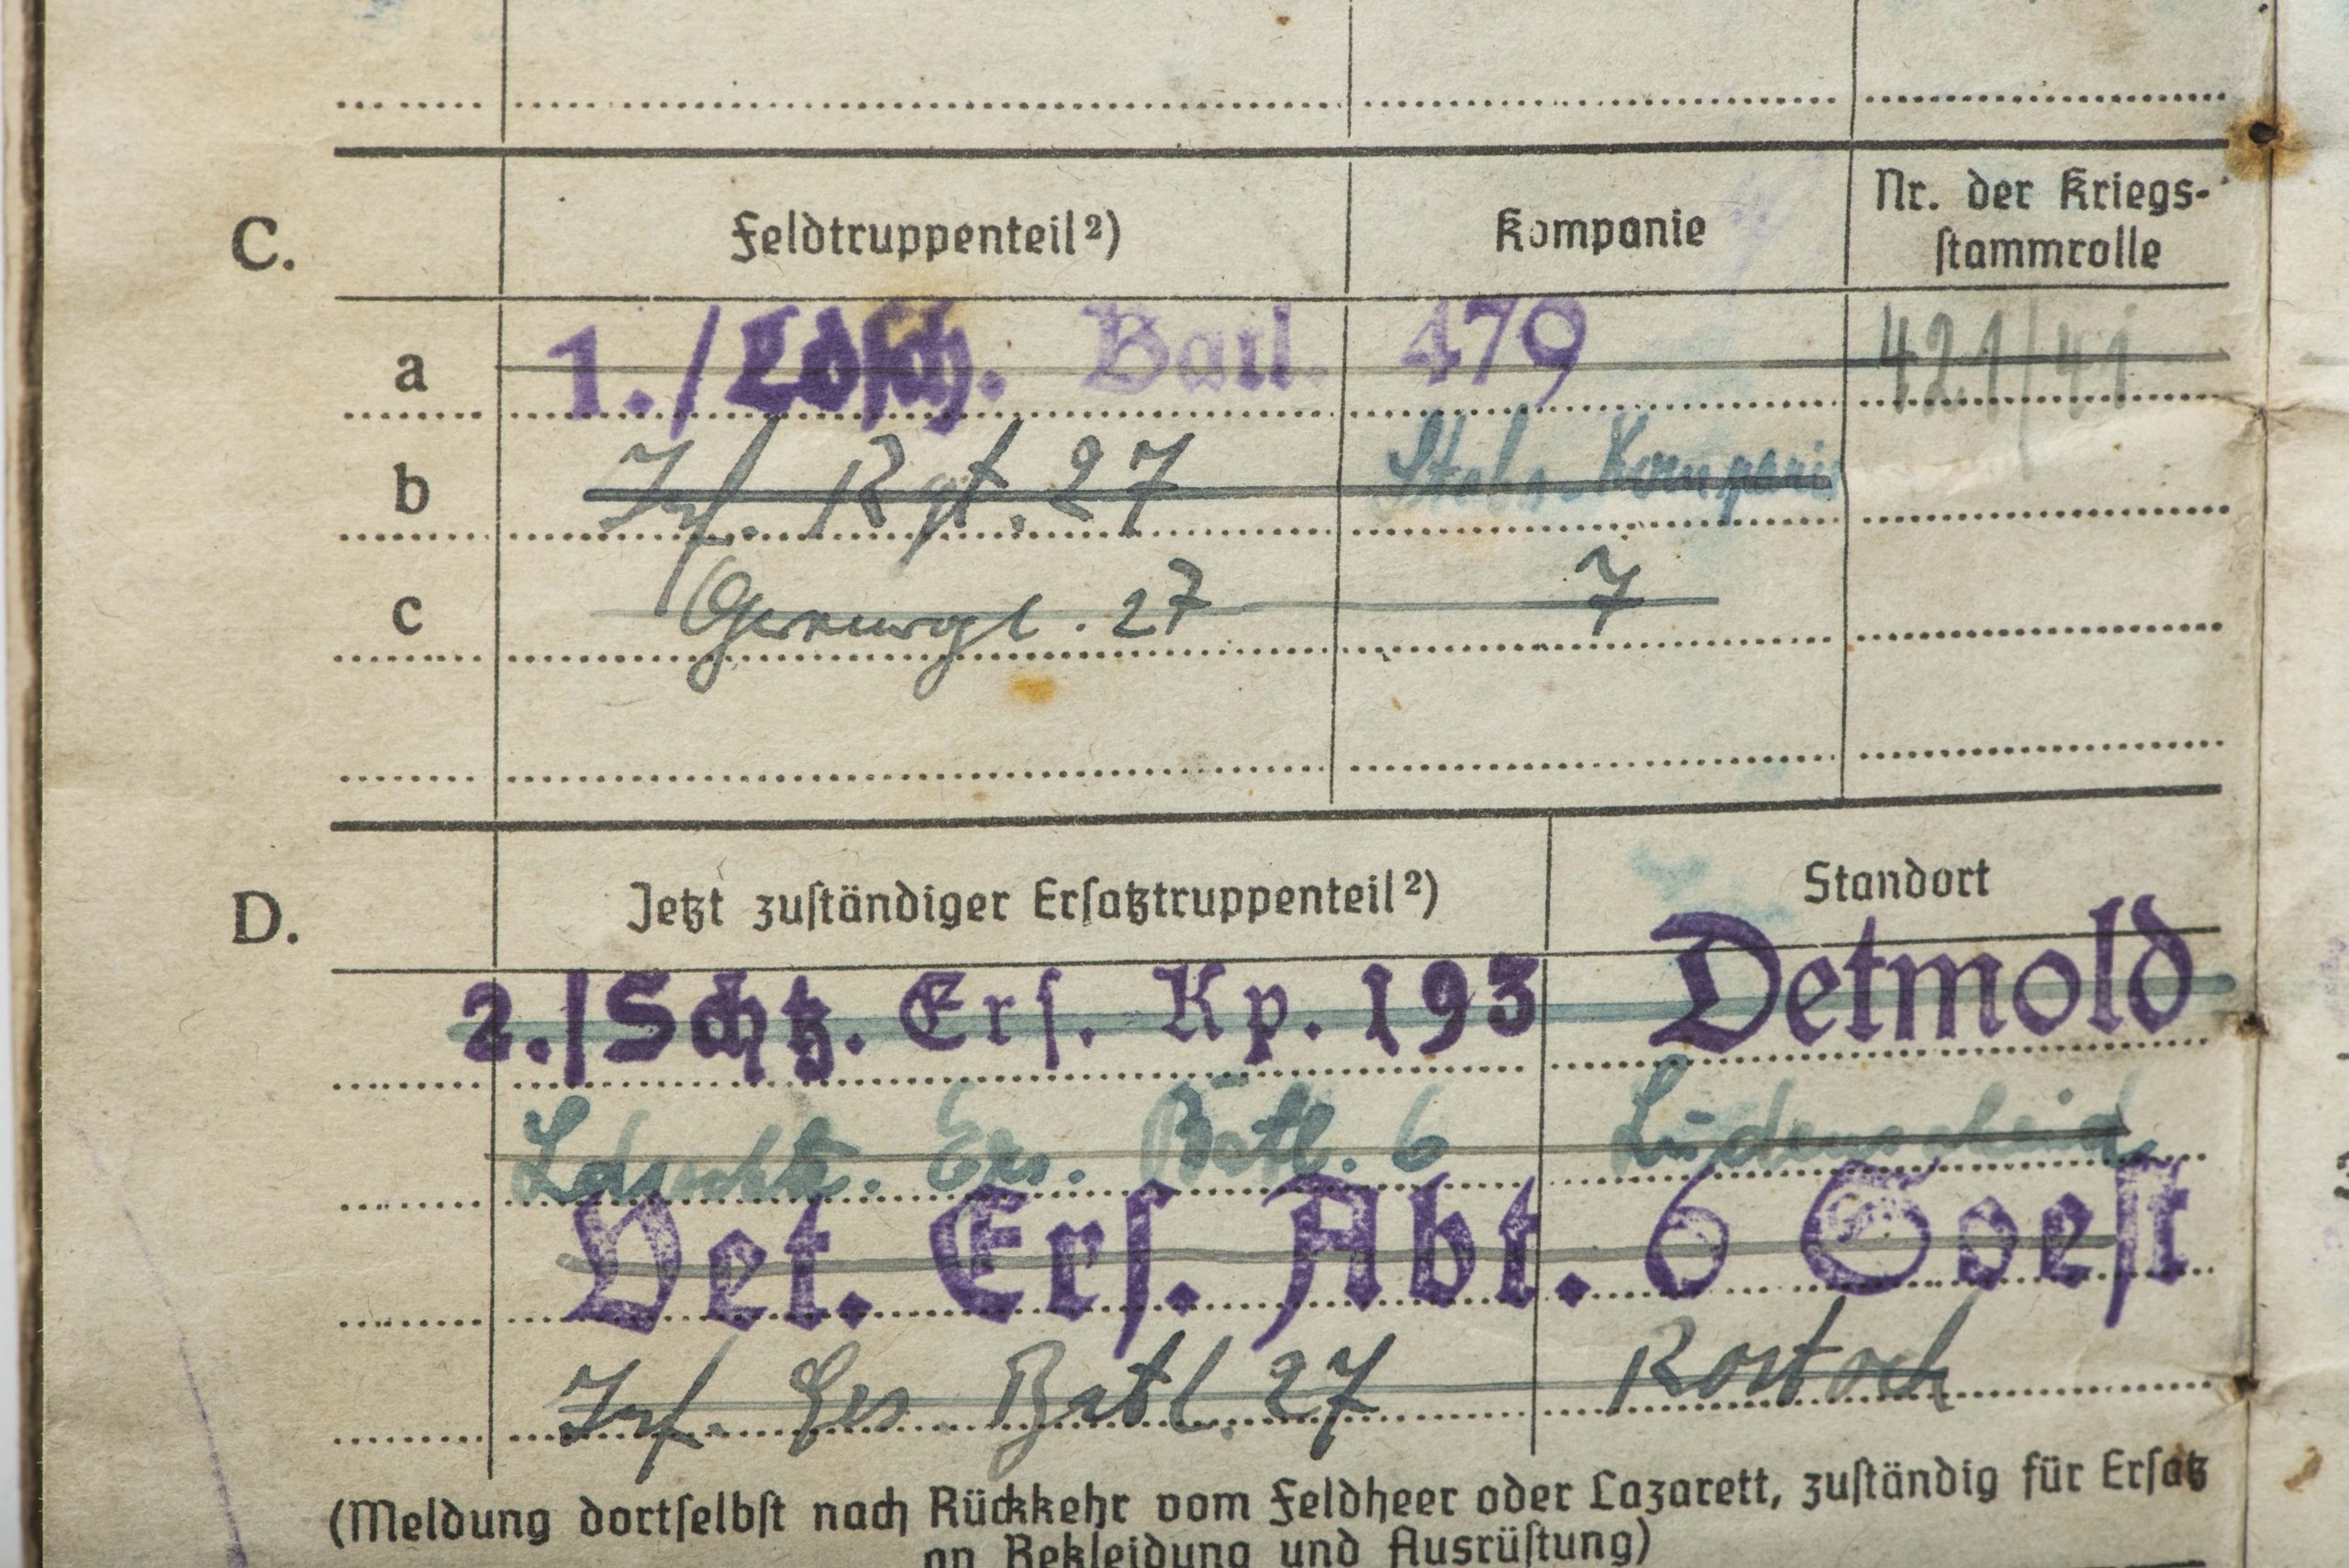 C. Feldtruppenteil²) Kompanie Nr. der Kriegs-
stammrolle
a 1./Ldſch. Batl. 479 421/41
b Inf. Rgt. 27 Stabs-Kompanie
c 27 7
D. Jetzt zuſtändiger Erſatztruppenteil²) Standort
2./Schtz. Erſ. Kp. 193 Detmold
Ldsschtz. Ers. Batl. 6 Lüdenscheid
Vet. Erſ. Abt. 6 Soeſt
Inf. Ers Batl. 27 Rostock
(Meldung dortſelbſt nach Rückkehr vom Feldheer oder Lazarett, zuſtändig für Erſatz
an Bekleidung und Ausrüſtung)